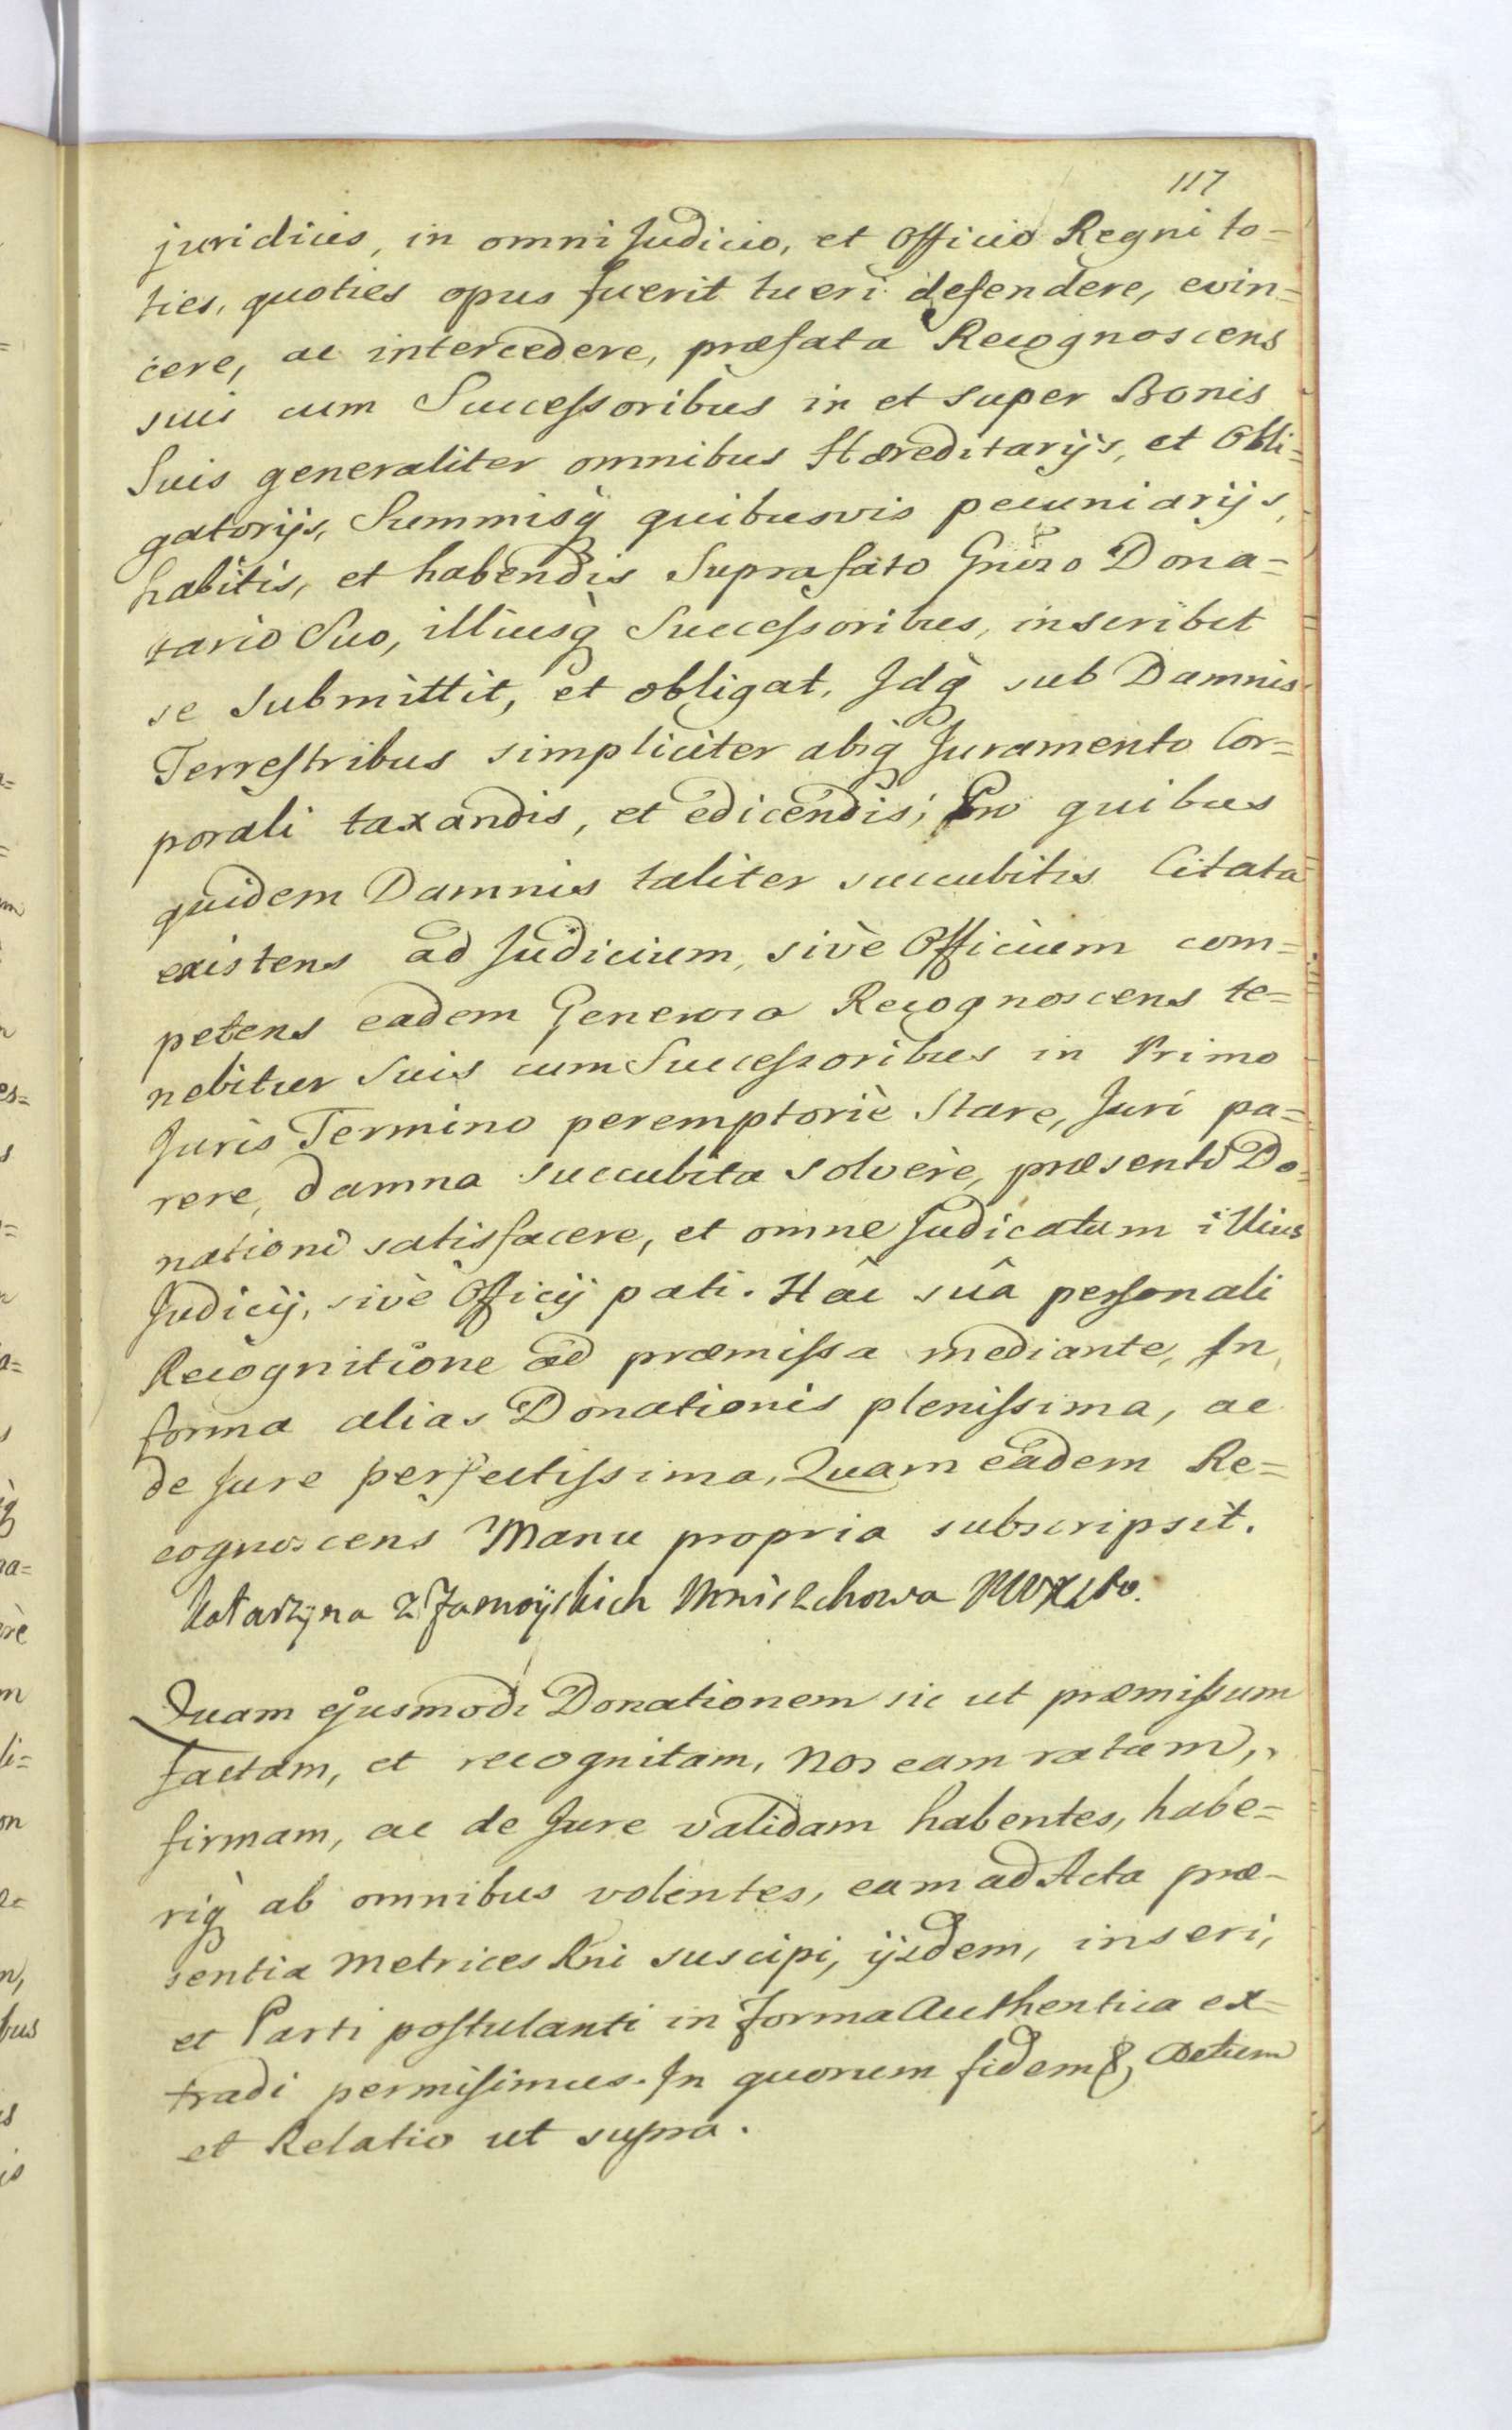 117
juridicis, in omni Judicio, et Officio Regni to=
ties, quoties opus fuerit tueri defendere, evin=
cere, ac intercedere, præfata Recognoscens
suis cum Successoribus in et super Bonis
Suis generaliter omnibus Hæreditarijs, et Obli=
gatorijs, Summisq̀ quibusvis pecuniarijs,
habitis, et habendis Suprafato Gnõso Dona=
tario Suo, illiusq̀ Successoribus, inscribit
se submittit, et obligat, Idq̀ sub Damnis
Terrestribus simpliciter absq̀ Juramento Cor=
porali taxandis, et edicendis; Pro quibus
quidem Damnis taliter succubitis Citata
existens ad Judicium, sivè Officium com=
petens eadem Generosa Recognoscens te=
nebitur Suis cum Successoribus in Primo
Juris Termino peremptoriè Stare, Juri pa=
rere, damna succubita solvere, præsenti Do=
nationi satisfacere, et omne Judicatum illius
Judicij, sivè Officij pati. Hâc suâ personali
Recognitione ad præmissa mediante, In
forma alias Donationis plenissima, ac
de Jure perfectissima, Quam eadem Re=
cognoscens Manu propria subscripsit.
Katarzyna z Zamoyskich Mniszchowa
Quam ejusmodi Donationem sic ut præmissum
factam, et recognitam, Nos eam ratam,
firmam, ac de Jure validam habentes, habe=
riq̀ ab omnibus volentes, eam ad Acta præ-
sentia Metrices Rni suscipi, ijsdem, inseri,
et Parti postulanti in forma Authentica ex=
tradi permisimus. In quorum fidem &, Actum
et Relatio ut supra.